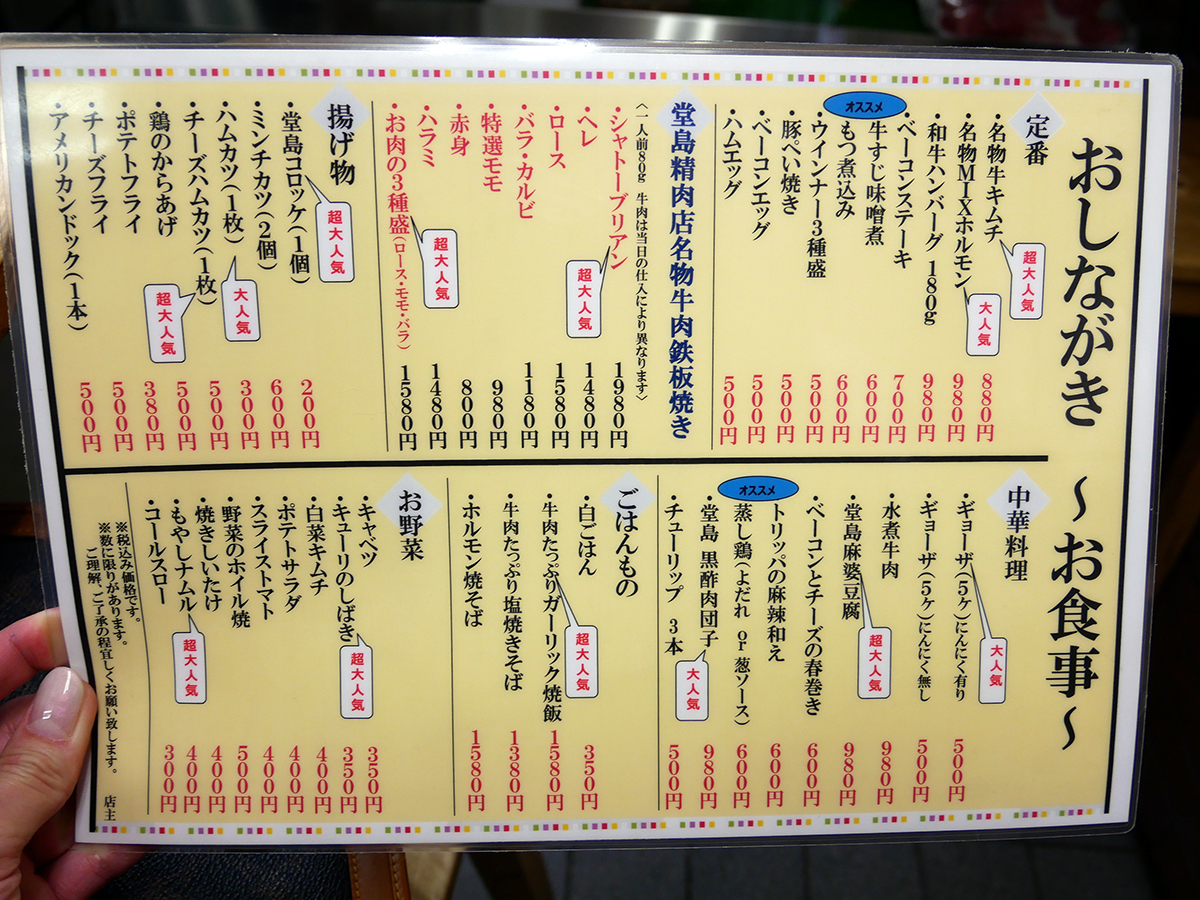 おしながき 〜お食事〜
定番
・名物牛キムチ 880円
超大人気
・名物MIXホルモン 980円
大人気
・和牛ハンバーグ 180g 980円
・ベーコンステーキ 700円
オススメ
・牛すじ味噌煮 600円
・もつ煮込み 600円
・ウインナー3種盛 500円
・豚ぺい焼き 500円
・ベーコンエッグ 500円
・ハムエッグ 500円
堂島精肉店名物牛肉鉄板焼き
〈一人前80g 牛肉は当日の仕入により異なります〉
・シャトーブリアン 1980円
超大人気
・ヘレ 1480円
・ロース 1580円
・バラ・カルビ 1180円
・特選モモ 980円
・赤身 800円
・ハラミ 1480円
・お肉の3種盛(ロース・モモ・バラ) 1580円
超大人気
揚げ物
・堂島コロッケ(1個) 200円
超大人気
・ミンチカツ(2個) 600円
・ハムカツ(1枚) 300円
大人気
・チーズハムカツ(1枚) 500円
超大人気
・鶏のからあげ 500円
・ポテトフライ 380円
・チーズフライ 500円
・アメリカンドック(1本) 500円
中華料理
・ギョーザ(5ヶ)にんにく有り 500円
大人気
・ギョーザ(5ヶ)にんにく無し 500円
・水煮牛肉 980円
・堂島麻婆豆腐 980円
超大人気
・ベーコンとチーズの春巻き 600円
・トリッパの麻辣和え 600円
オススメ
・蒸し鶏(よだれ or 葱ソース) 600円
・堂島 黒酢肉団子 980円
大人気
・チューリップ 3本 500円
ごはんもの
・白ごはん 350円
・牛肉たっぷりガーリック焼飯 1580円
超大人気
・牛肉たっぷり塩焼きそば 1380円
・ホルモン焼そば 1580円
お野菜
・キャベツ 350円
・キューリのしばき 350円
超大人気
・白菜キムチ 400円
・ポテトサラダ 400円
・スライストマト 400円
・野菜のホイル焼 500円
・焼きしいたけ 400円
・もやしナムル 400円
超大人気
・コールスロー 300円
※税込み価格です。
※数に限りがあります。
ご理解、ご了承の程宜しくお願い致します。 店主